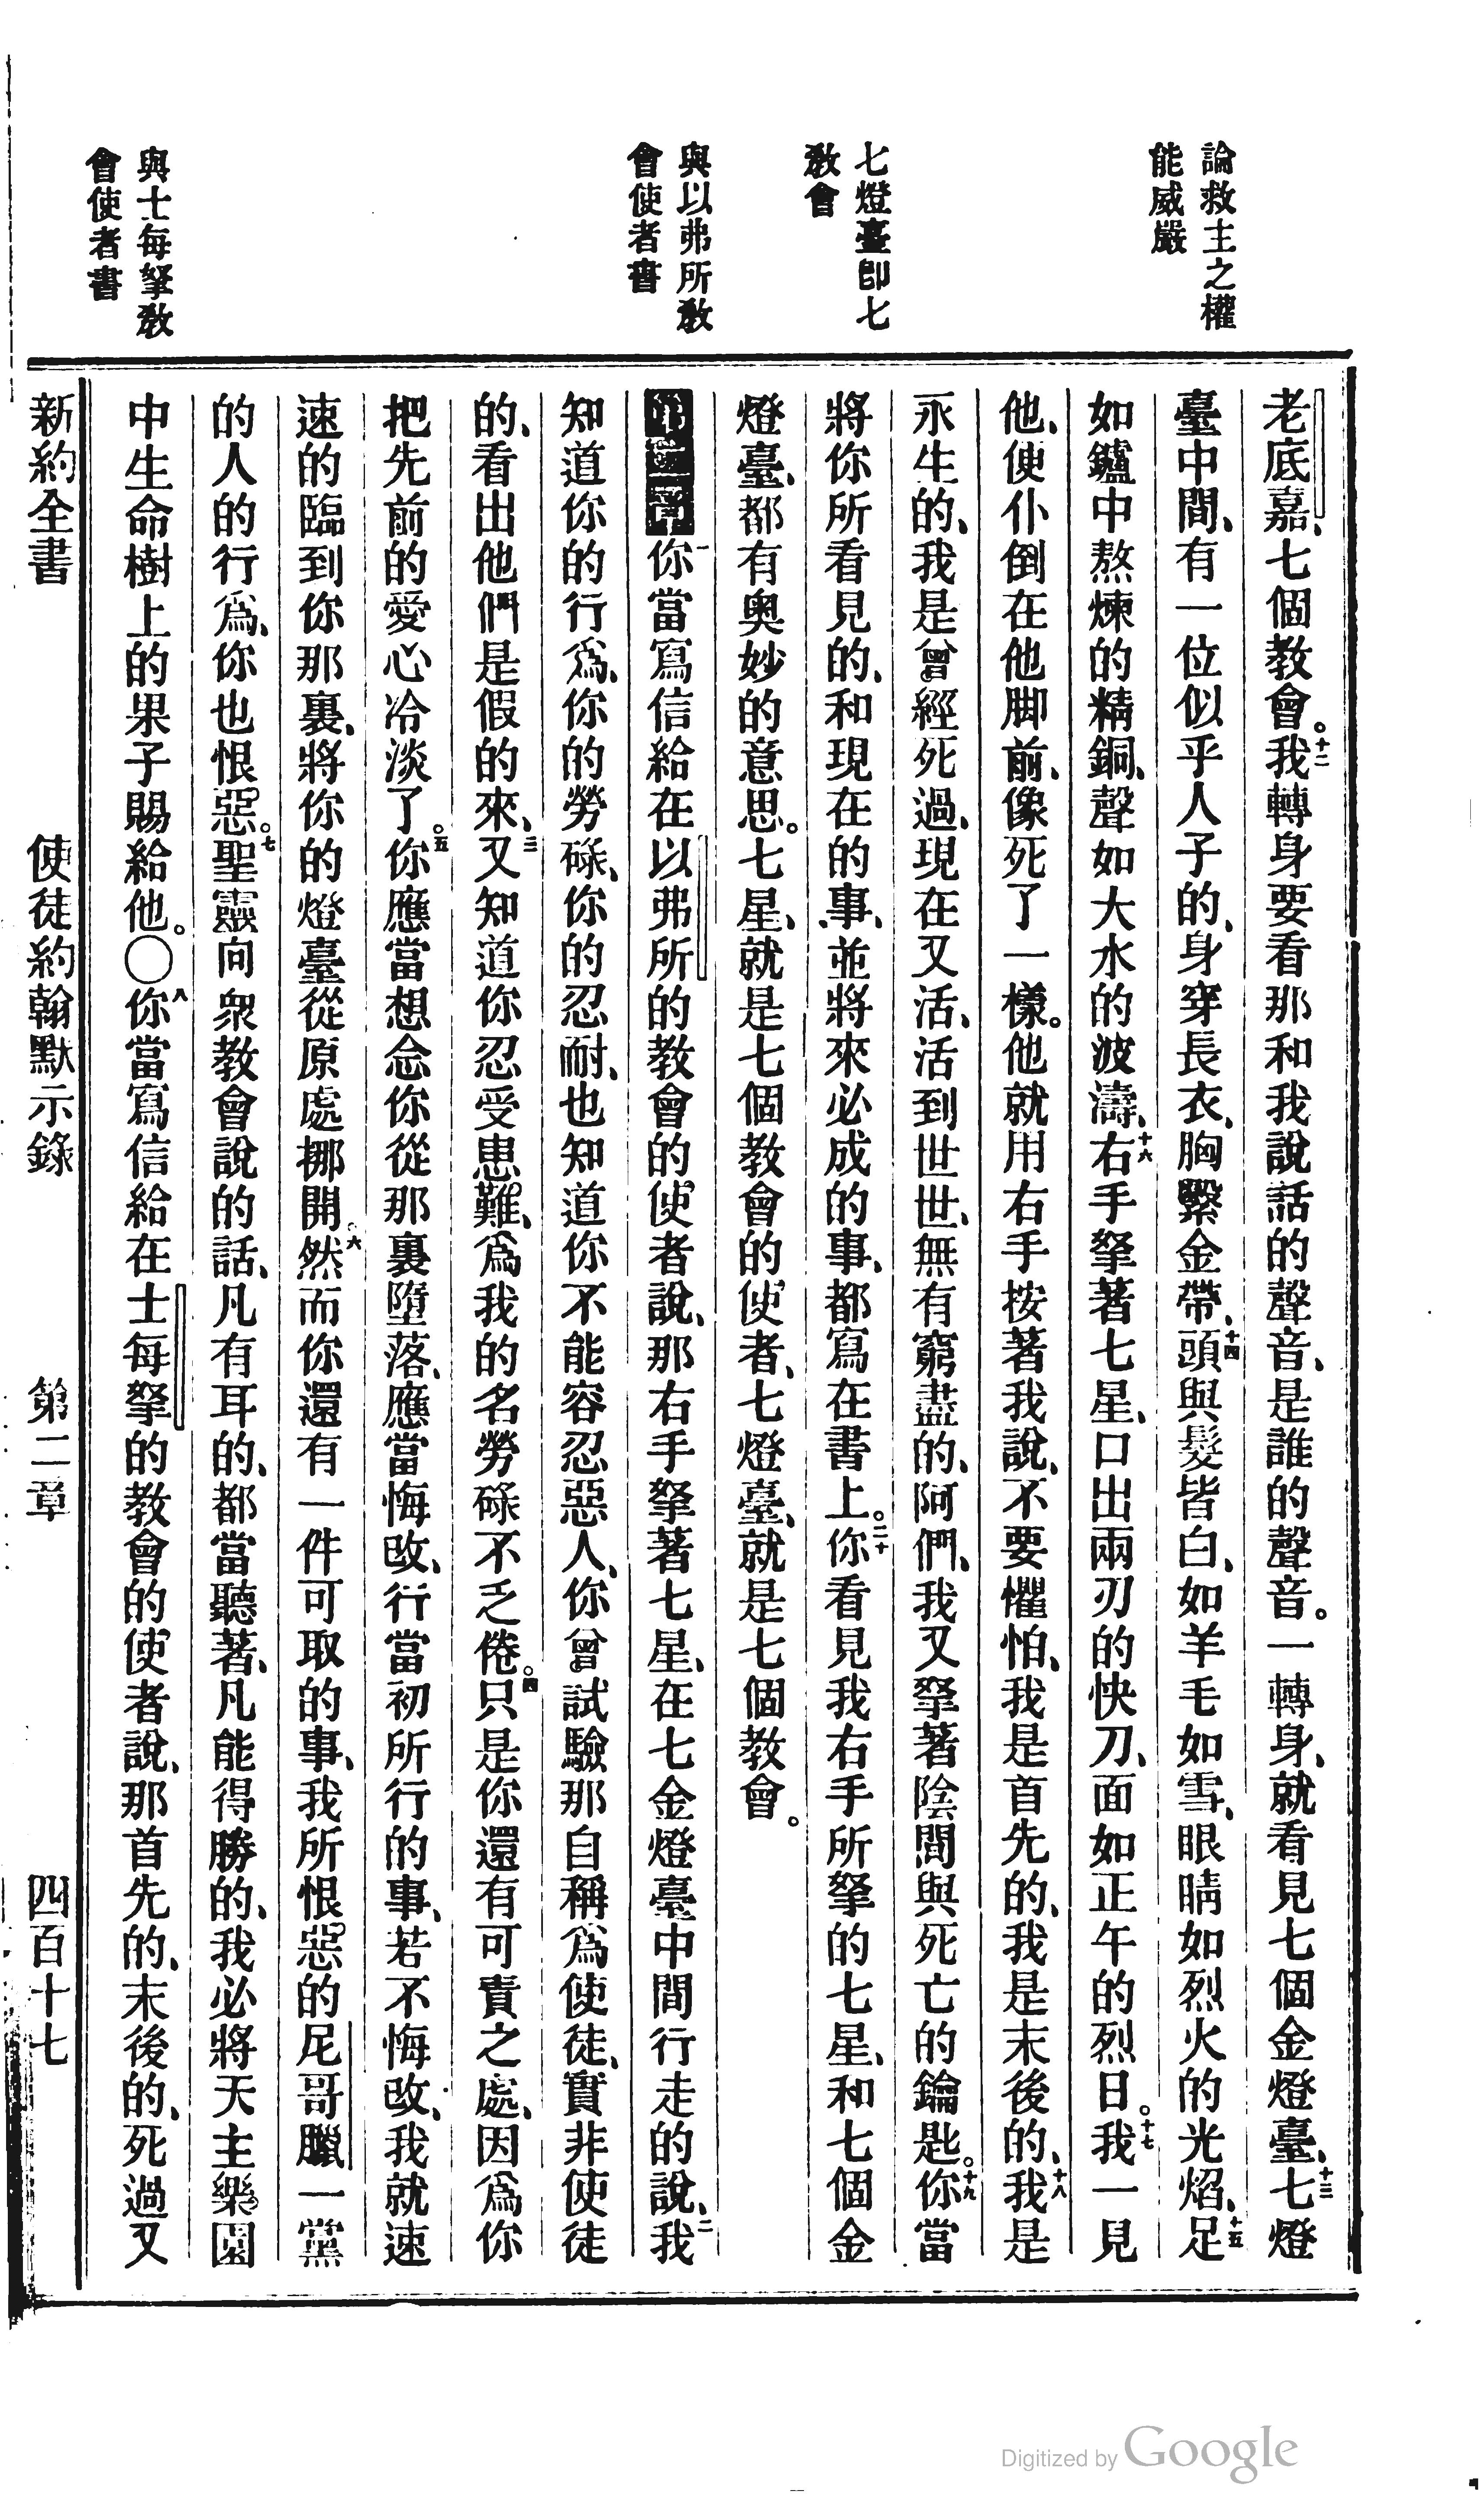 論救主之權
能威嚴
七燈臺即七
教會
與以弗所教
會使者書
與士每拏教
會使者書
老底嘉、七個教會。十二我轉身要看那和我說話的聲音、是誰的聲音。一轉身、就看見七個金燈臺、十三七燈
臺中間、有一位似乎人子的、身穿長衣、胸繫金帶、十四頭與髮皆白、如羊毛如雪、眼睛如烈火的光焰、十五足
如鑪中熬煉的精銅、聲如大水的波濤、十六右手拏著七星、口出兩刃的快刀、面如正午的烈日。十七我一見
他、便仆倒在他脚前、像死了一樣。他就用右手按著我說、不要懼怕、我是首先的、我是末後的、十八我是
永生的、我是曾經死過、現在又活、活到世世、無有窮盡的、阿們、我又拏著陰間與死亡的鑰匙。十九你當
將你所看見的、和現在的事、並將來必成的事、都寫在書上。二十你看見我右手所拏的七星、和七個金
燈臺、都有奧妙的意思。七星、就是七個教會的使者、七燈臺、就是七個教會。
第二章一你當寫信給在以弗所的教會的使者說、那右手拏著七星、在七金燈臺中間行走的說、二我
知道你的行爲、你的勞碌、你的忍耐、也知道你不能容忍惡人、你曾試驗那自稱爲使徒、實非使徒
的、看出他們是假的來、三又知道你忍受患難、爲我的名勞碌不乏倦。四只是你還有可責之處、因爲你
把先前的愛心冷淡了。五你應當想念你從那裏墮落、應當悔改、行當初所行的事、若不悔改、我就速
速的臨到你那裏、將你的燈臺從原處挪開。六然而你還有一件可取的事、我所恨惡的尼哥臘一黨
的人的行爲、你也恨惡。七聖靈向衆教會說的話、凡有耳的、都當聽著、凡能得勝的、我必將天主樂園
中生命樹上的果子賜給他。〇八你當寫信給在士每拏的教會的使者說、那首先的、末後的、死過又
新約全書 使徒約翰默示錄 第二章 四百十七
Digitized by Google